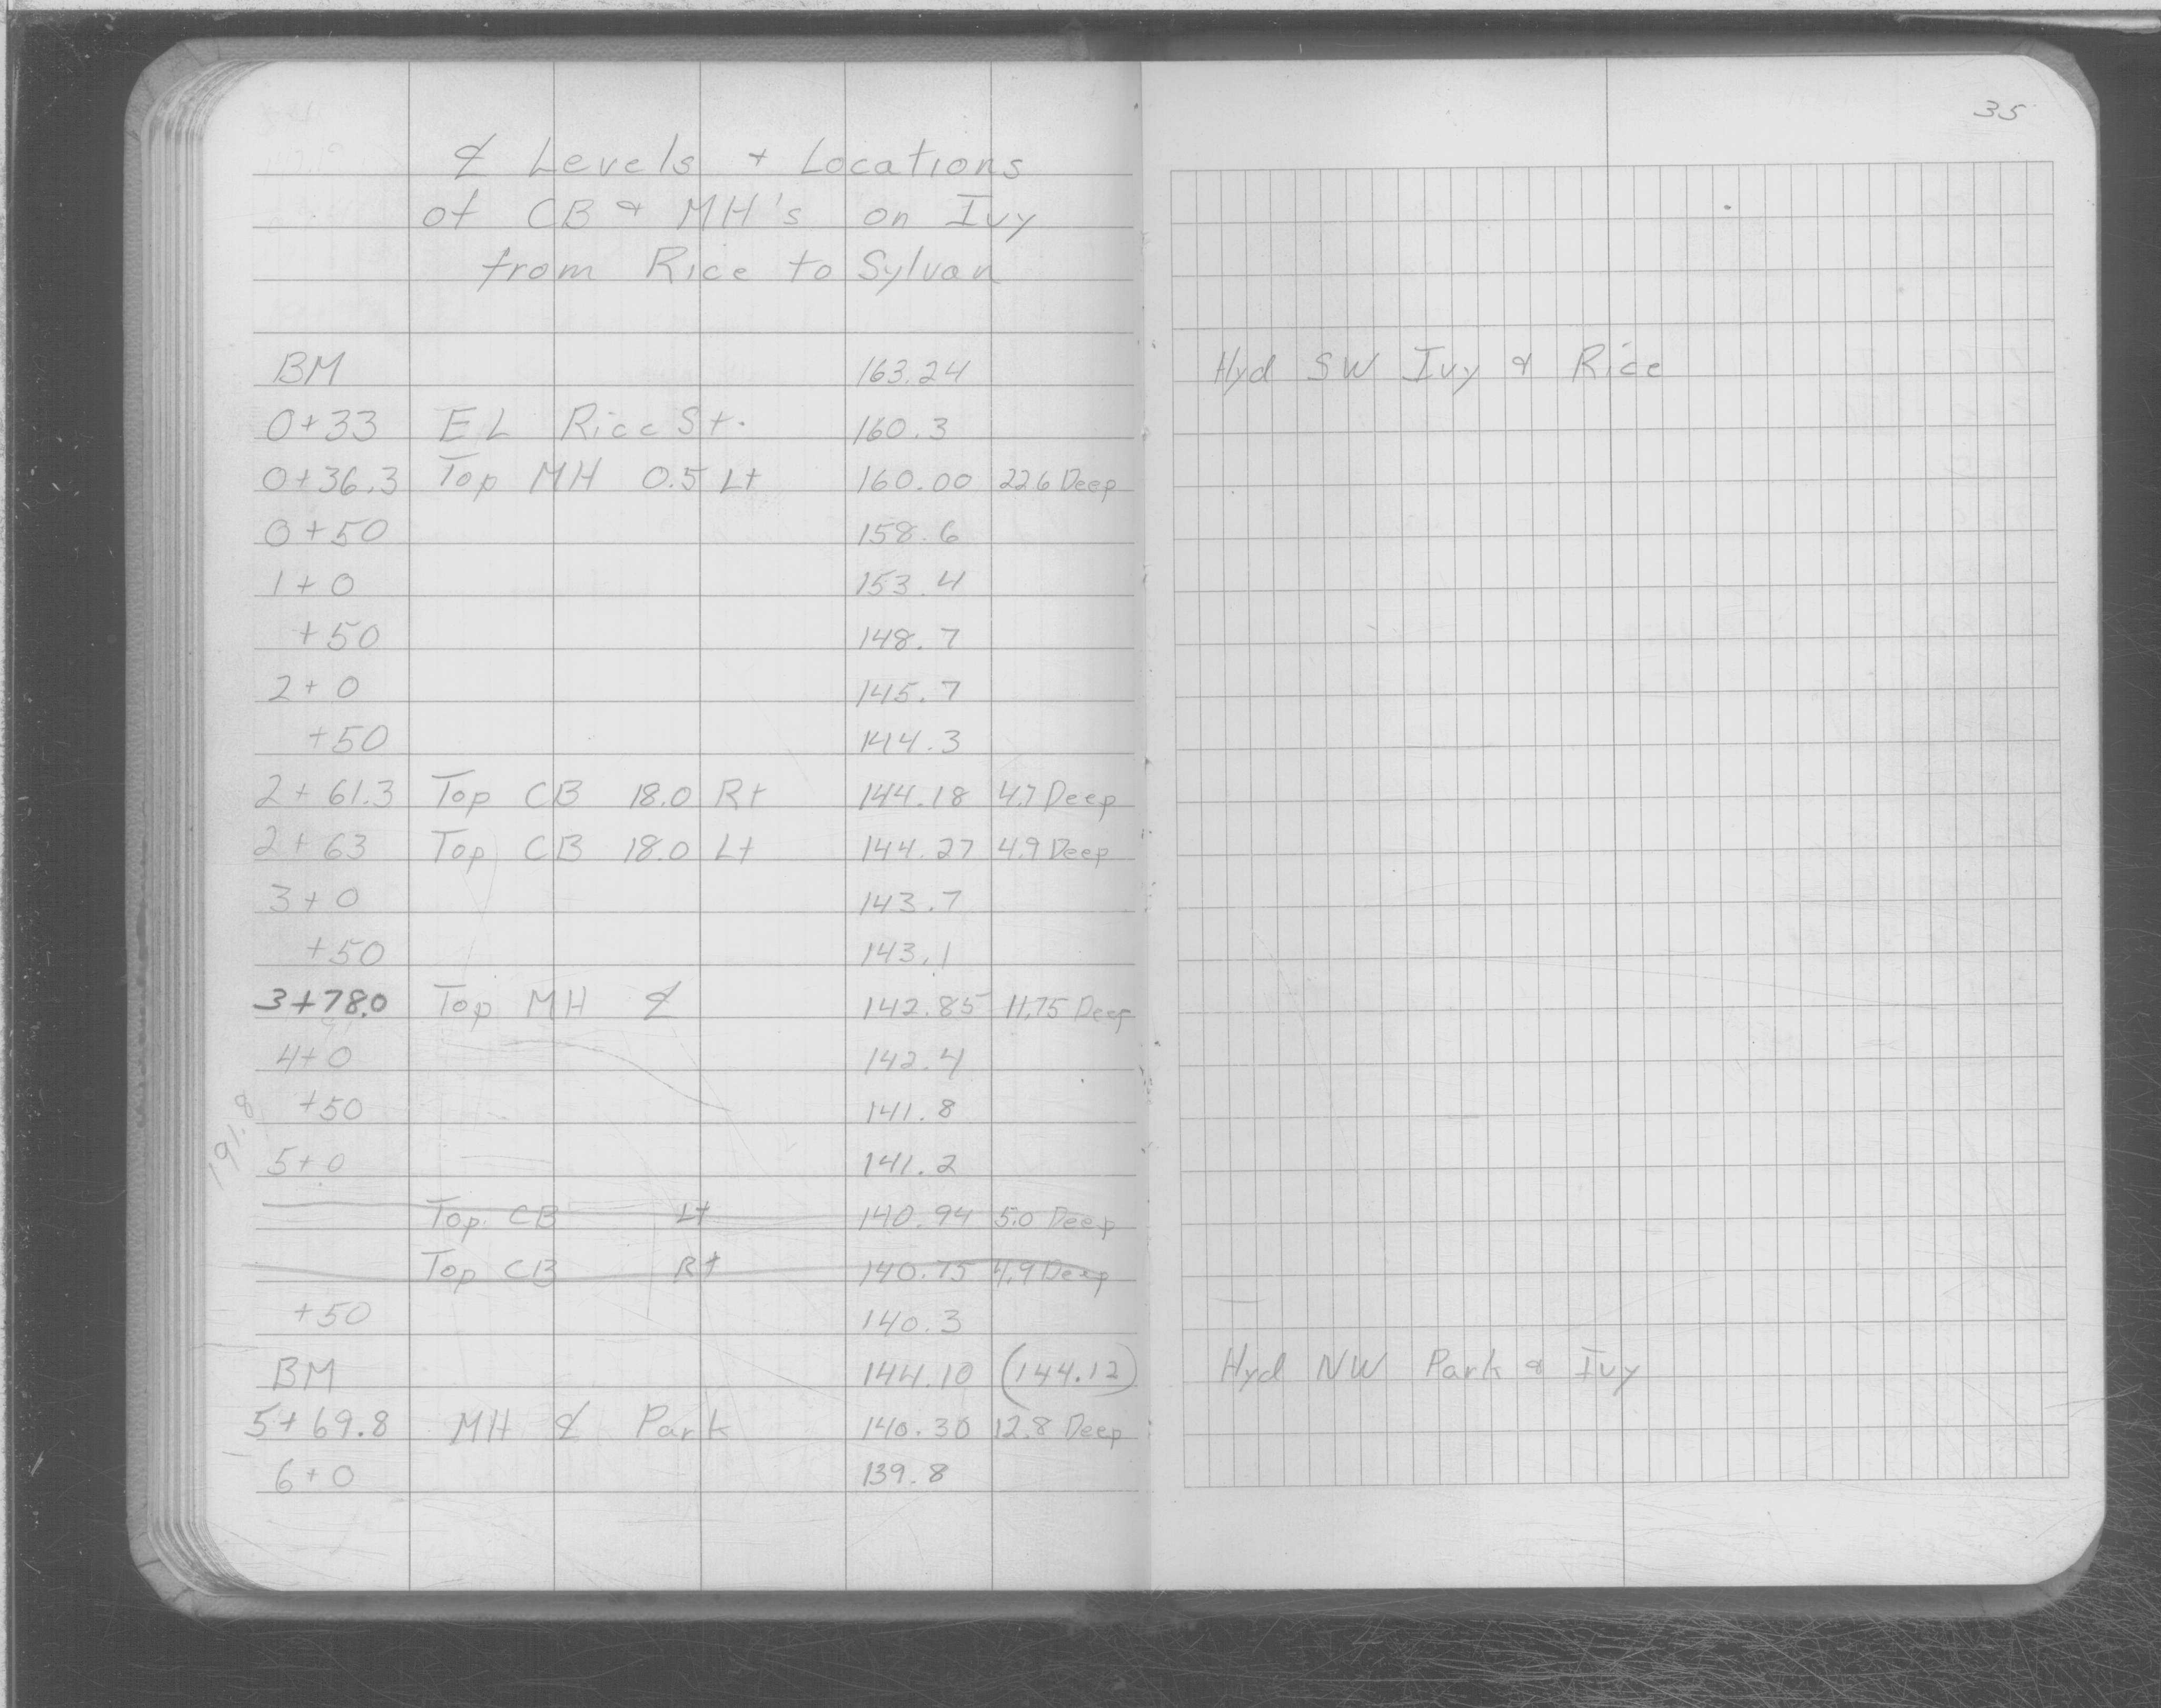 35
℄ Levels + Locations
of CB & MH's on Ivy
from Rice to Sylvan
BM 163.24 Hyd SW Ivy & Rice
0+33 EL Rice St. 160.3
0+36.3 Top MH 0.5 Lt 160.00 22.6 Deep
0+50 158.6
1+0 153.4
+50 148.7
2+0 145.7
+50 144.3
2+61.3 Top CB 18.0 Rt 144.18 4.7 Deep
2+63 Top CB 18.0 Lt 144.27 4.9 Deep
3+0 143.7
+50 143.1
3+78.0 Top MH ℄ 142.85 11.75 Deep
4+0 142.4
+50 141.8
191.8
5+0 141.2
Top CB Lt 140.94 5.0 Deep
Top CB Rt 140.75 4.9 Deep
+50 140.3
BM 144.10 (144.12) Hyd NW Park & Ivy
5+69.8 MH ℄ Park 140.30 12.8 Deep
6+0 139.8